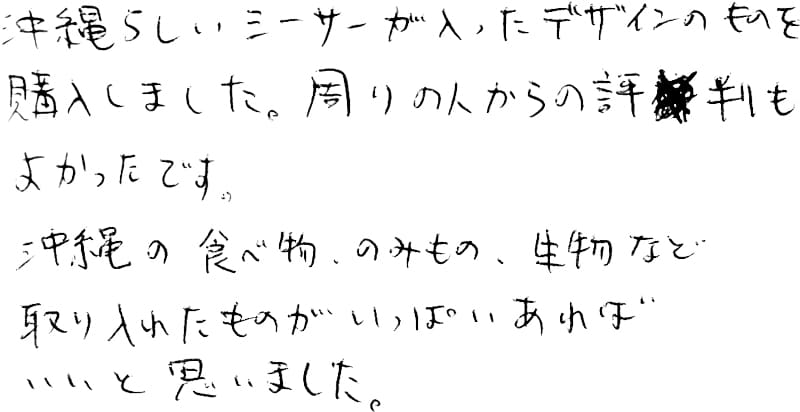 沖縄らしいシーサーが入ったデザインのものを
購入しました。周りの人からの評判も
よかったです。
沖縄の食べ物、のみもの、生物など
取り入れたものがいっぱいあれば
いいと思いました。